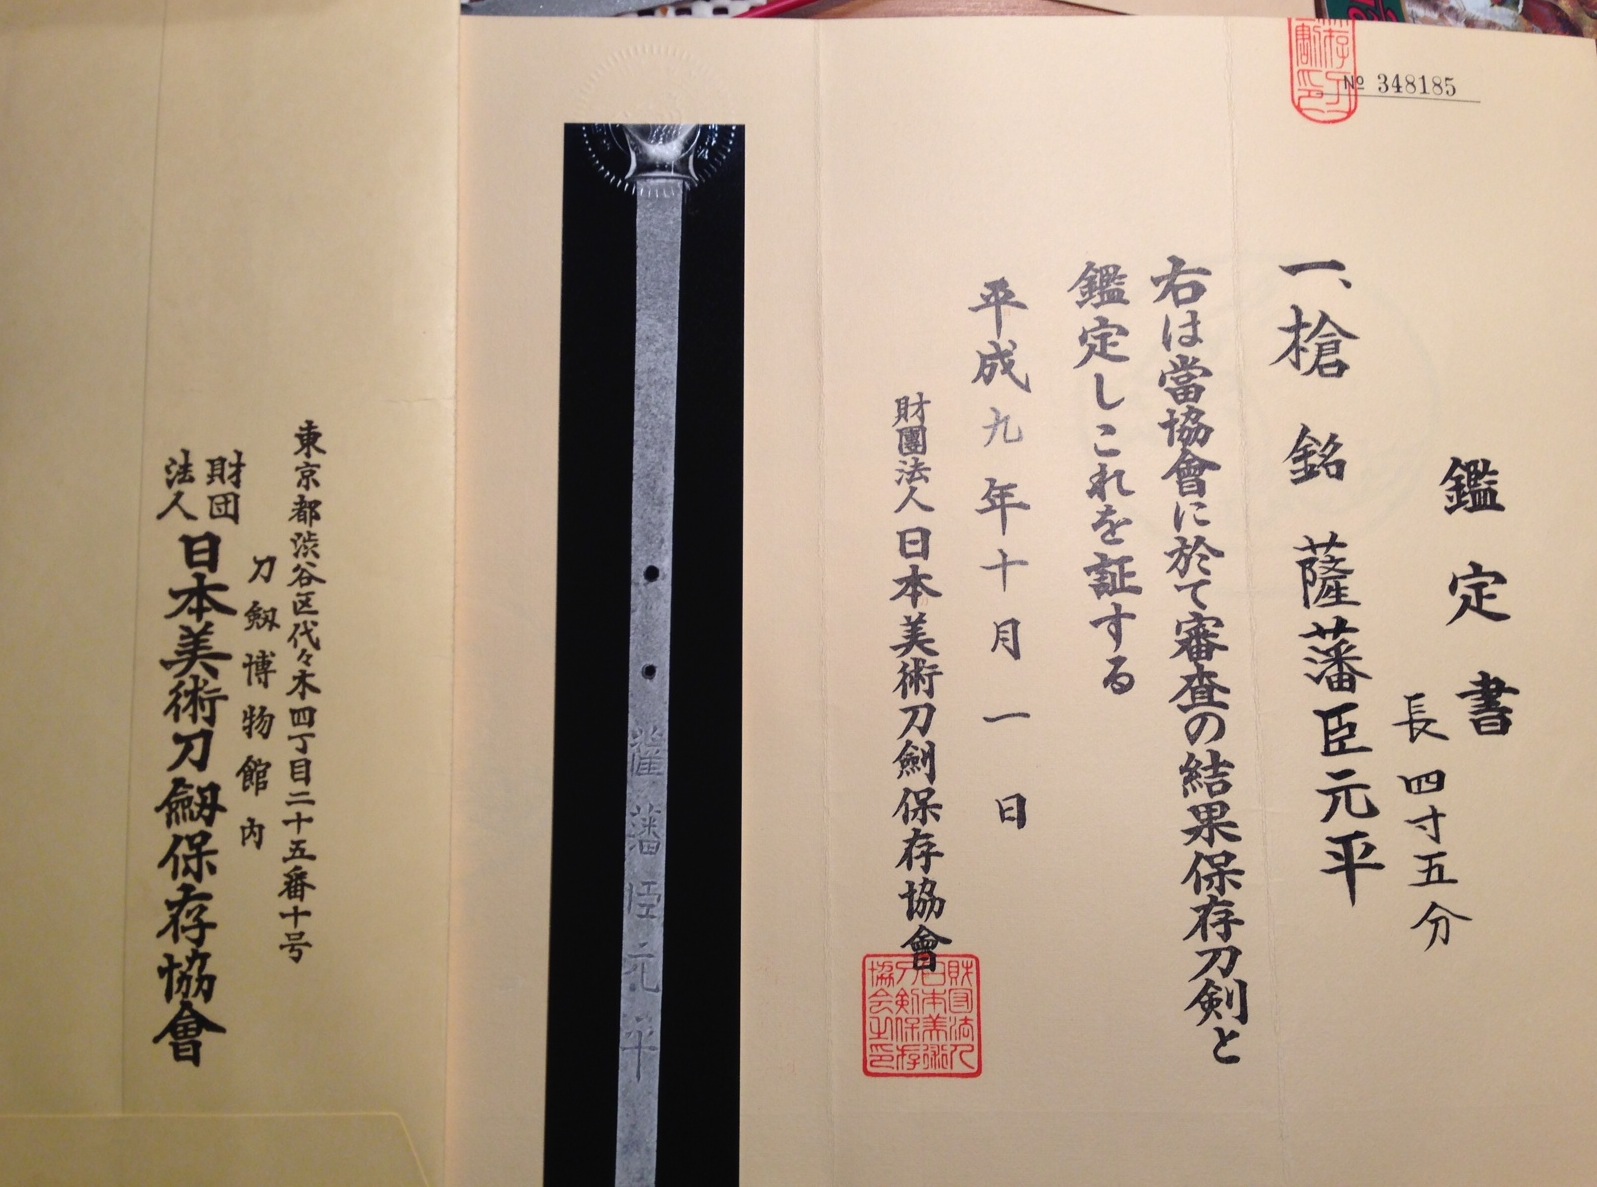 № 348185
鑑定書
長四寸五分
一、槍 銘 薩藩臣元平
右は當協會に於て審査の結果保存刀剣と
鑑定しこれを証する
平成九年十月一日
財團法人日本美術刀劍保存協會
財団法人
日本美術
刀剣保存
協会之印
薩藩臣元平
東京都渋谷区代々木四丁目二十五番十号
刀剱博物館内
財団法人 日本美術刀剱保存協會